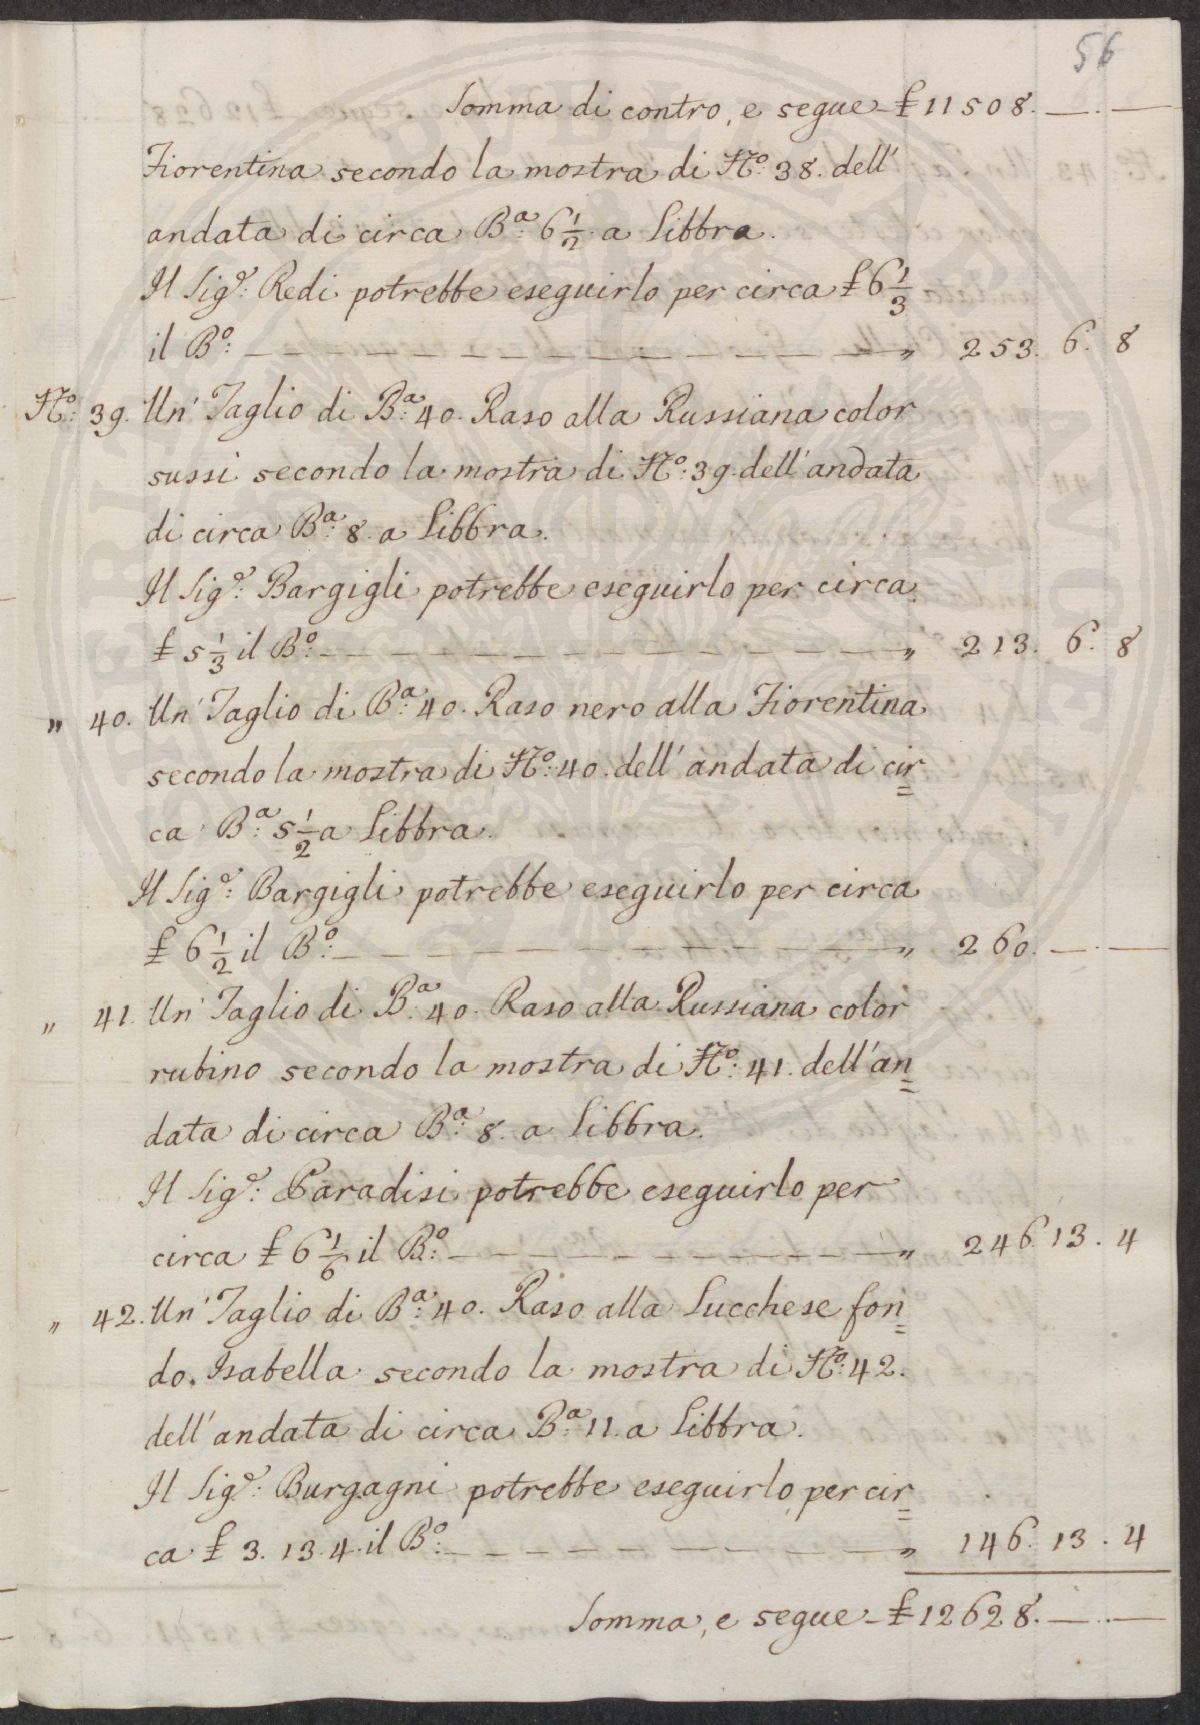 56
Somma di contro, e segue £ 11508. — . —
Fiorentina secondo la mostra di N.º 38. dell'
andata di circa B.ª 6 1/2 a Libbra.
Il Sig.r Redi potrebbe eseguirlo per circa £ 6 1/3
il B.º — — — — — — — — — — — — — — „ 253. 6. 8
N.º 39. Un' Taglio di B.ª 40. Raso alla Russiana color
sussi secondo la mostra di N.º 39. dell'andata
di circa B.ª 8. a Libbra.
Il Sig.r Bargigli potrebbe eseguirlo per circa
£ 5 1/3 il B.º — — — — — — — — — — — — — „ 213. 6. 8
„ 40. Un' Taglio di B.ª 40. Raso nero alla Fiorentina
secondo la mostra di N.º 40. dell'andata di cir=
ca B.ª 5 1/2 a Libbra.
Il Sig.r Bargigli potrebbe eseguirlo per circa
£ 6 1/2 il B.º — — — — — — — — — — — — „ 260. — . —
„ 41. Un' Taglio di B.ª 40. Raso alla Russiana color
rubino secondo la mostra di N.º 41. dell'an=
data di circa B.ª 8. a Libbra.
Il Sig.r Paradisi potrebbe eseguirlo per
circa £ 6 1/6 il B.º — — — — — — — — — — „ 246. 13. 4
„ 42. Un' Taglio di B.ª 40. Raso alla Lucchese fon=
do Isabella secondo la mostra di N.º 42.
dell'andata di circa B.ª 11. a Libbra.
Il Sig.r Burgagni potrebbe eseguirlo per cir=
ca £ 3. 13. 4. il B.º — — — — — — — — — — „ 146. 13. 4
Somma, e segue £ 12628. — . —